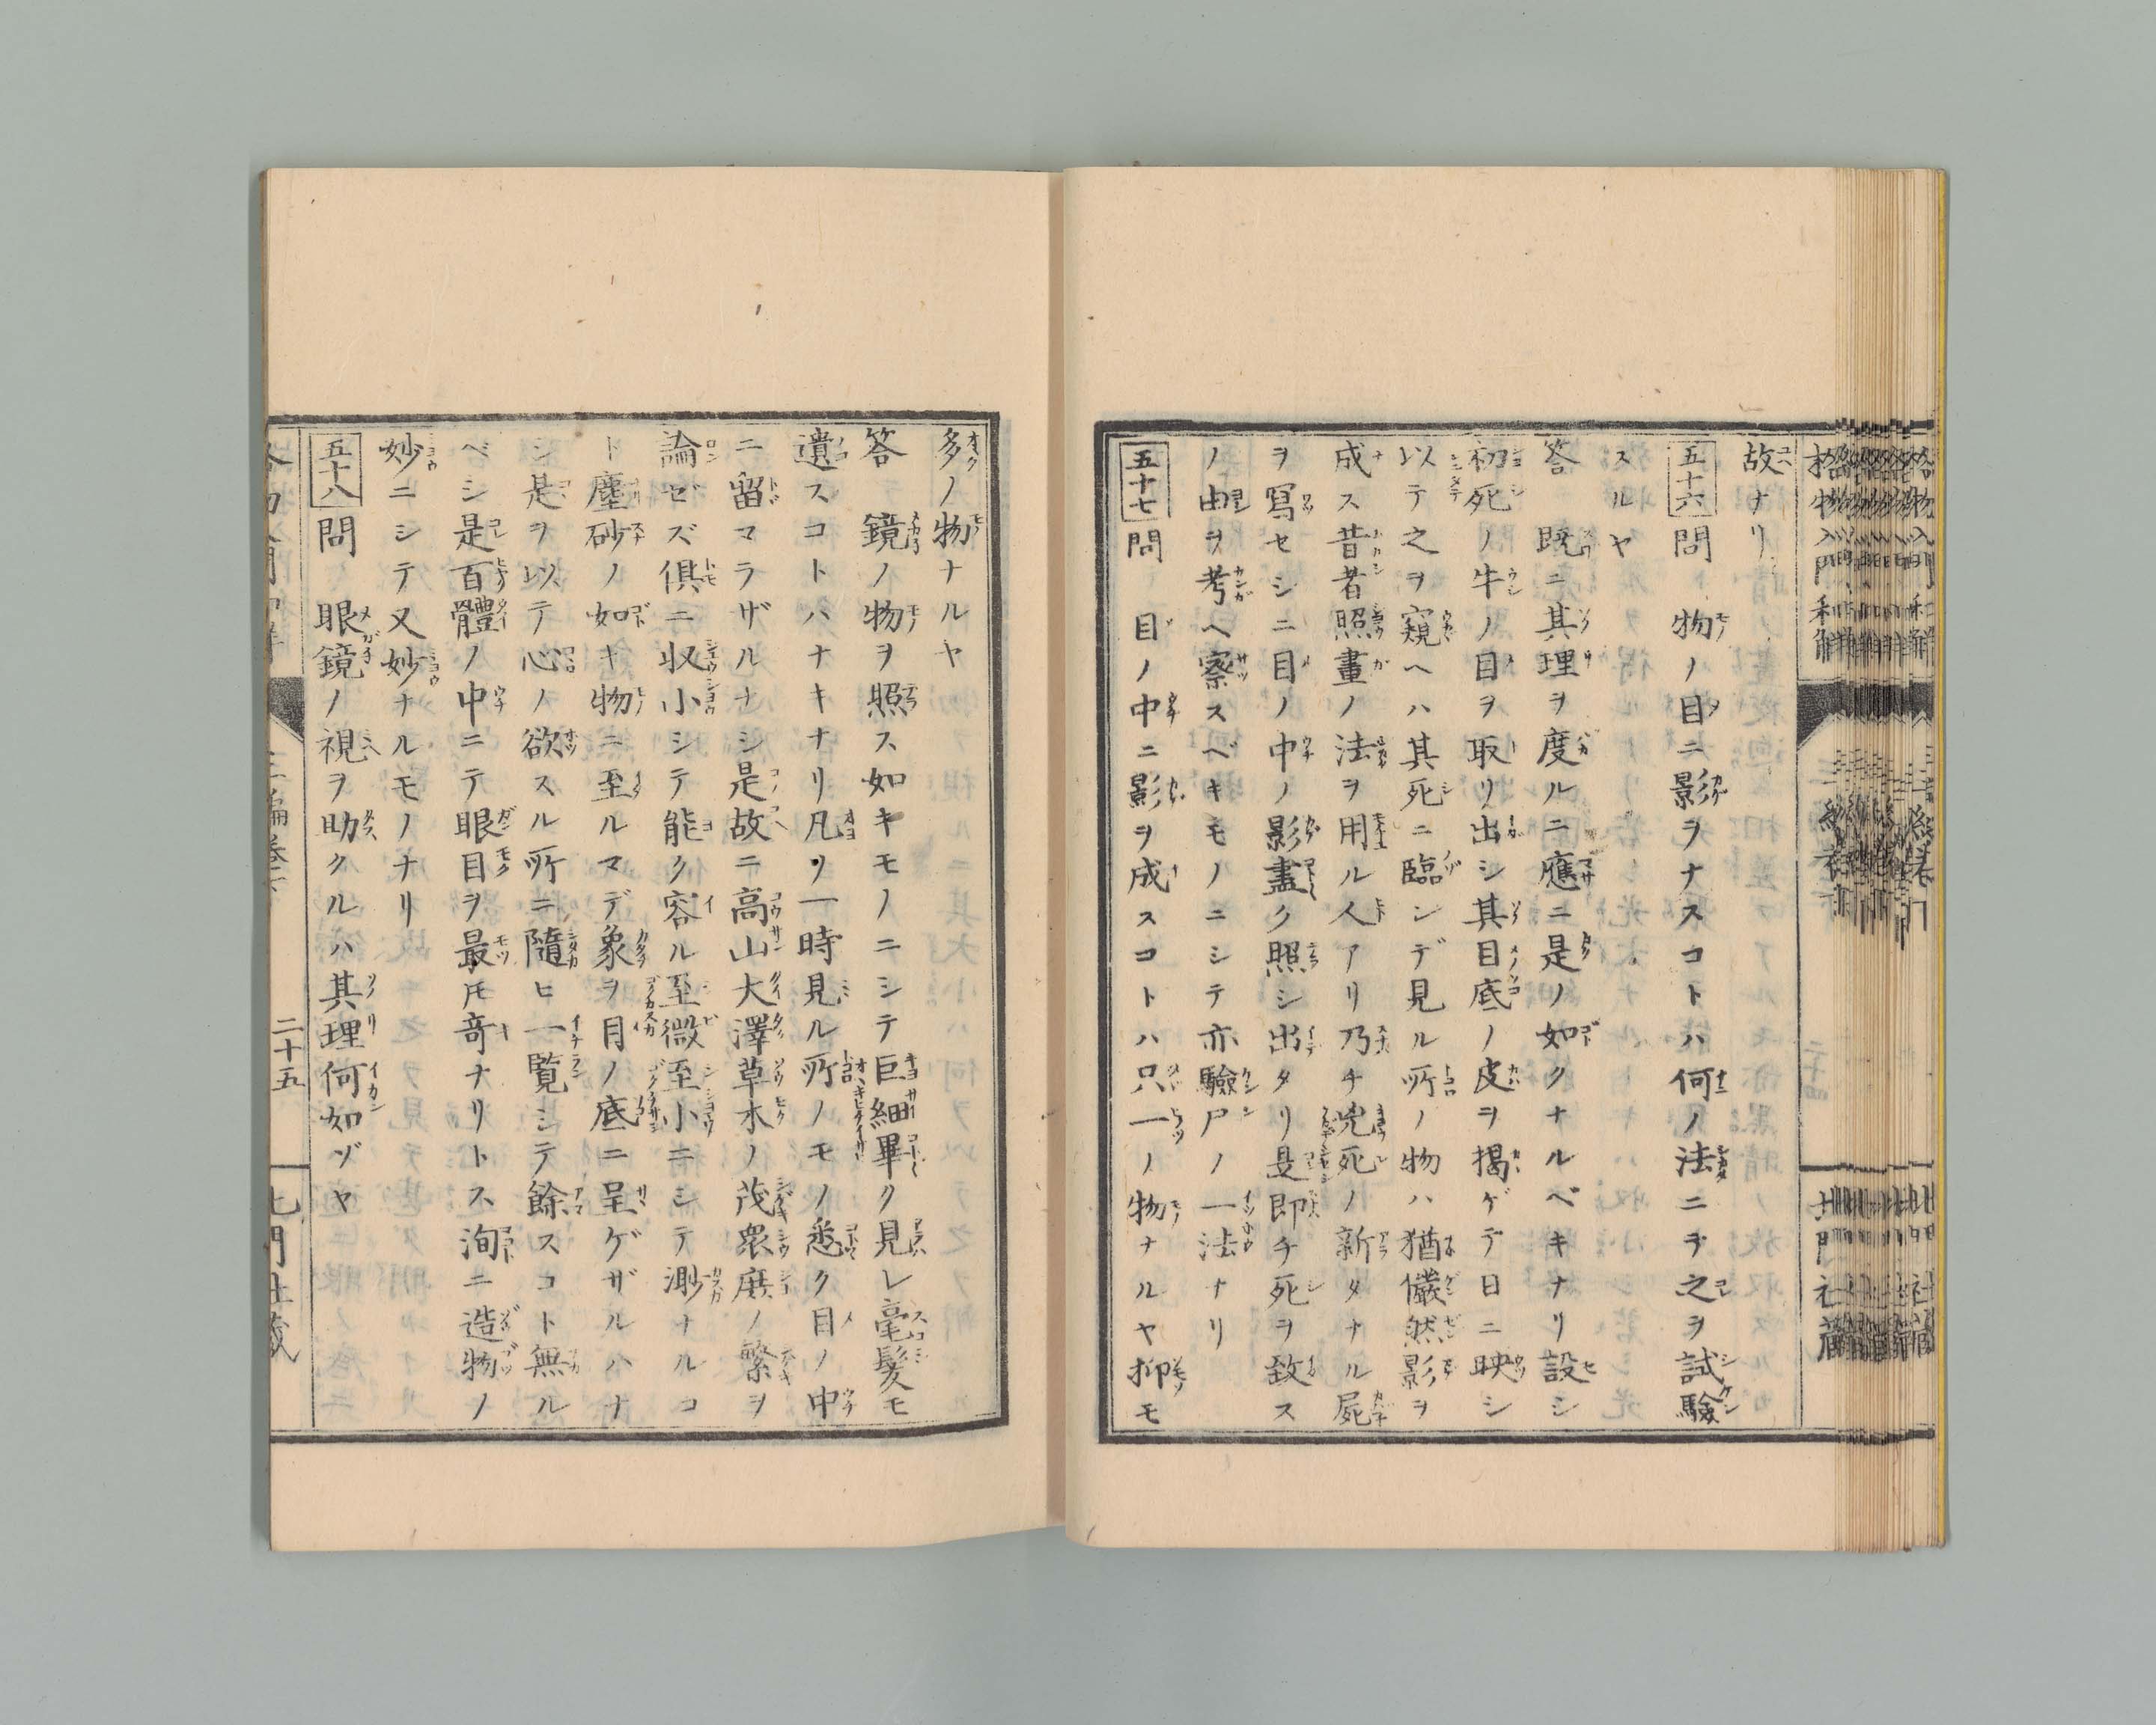 故ナリ
五十六 問 物ノ目ニ影ヲナスコトハ何ノ法ニテ之ヲ試驗
スルヤ
答 既ニ其理ヲ度ルニ應ニ是ノ如クナルベキナリ設シ
初死ノ牛ノ目ヲ取リ出シ其目底ノ皮ヲ揭ゲテ日ニ映シ
以テ之ヲ窺ヘハ其死ニ臨ンデ見ル所ノ物ハ猶儼然影ヲ
成ス昔者照畫ノ法ヲ用ル人アリ乃チ兇死ノ新タナル屍
ヲ寫セシニ目ノ中ノ影盡ク照シ出タリ是即チ死ヲ致ス
ノ由ヲ考ヘ察スベキモノニシテ亦驗尸ノ一法ナリ
五十七 問 目ノ中ニ影ヲ成スコトハ只一ノ物ナルヤ抑モ
多ノ物ナルヤ
答 鏡ノ物ヲ照ス如キモノニシテ巨細畢ク見レ毫髮モ
遺スコトハナキナリ凡ソ一時見ル所ノモノ悉ク目ノ中
ニ留マラザルナシ是故ニ高山大澤草木ノ茂衆庶ノ繁ヲ
論ゼズ俱ニ収小シテ能ク容ル至微至小ニシテ渺ナルコ
ト塵砂ノ如キ物ニ至ルマデ象ヲ目ノ底ニ呈ゲザルハナ
シ是ヲ以テ心ノ欲スル所ニ隨ヒ一覽シテ餘スコト無ル
ベシ是百體ノ中ニテ眼目ヲ最モ奇ナリトス洵ニ造物ノ
妙ニシテ又妙ナルモノナリ
五十八 問 眼鏡ノ視ヲ助クルハ其理何如ゾヤ
二十五